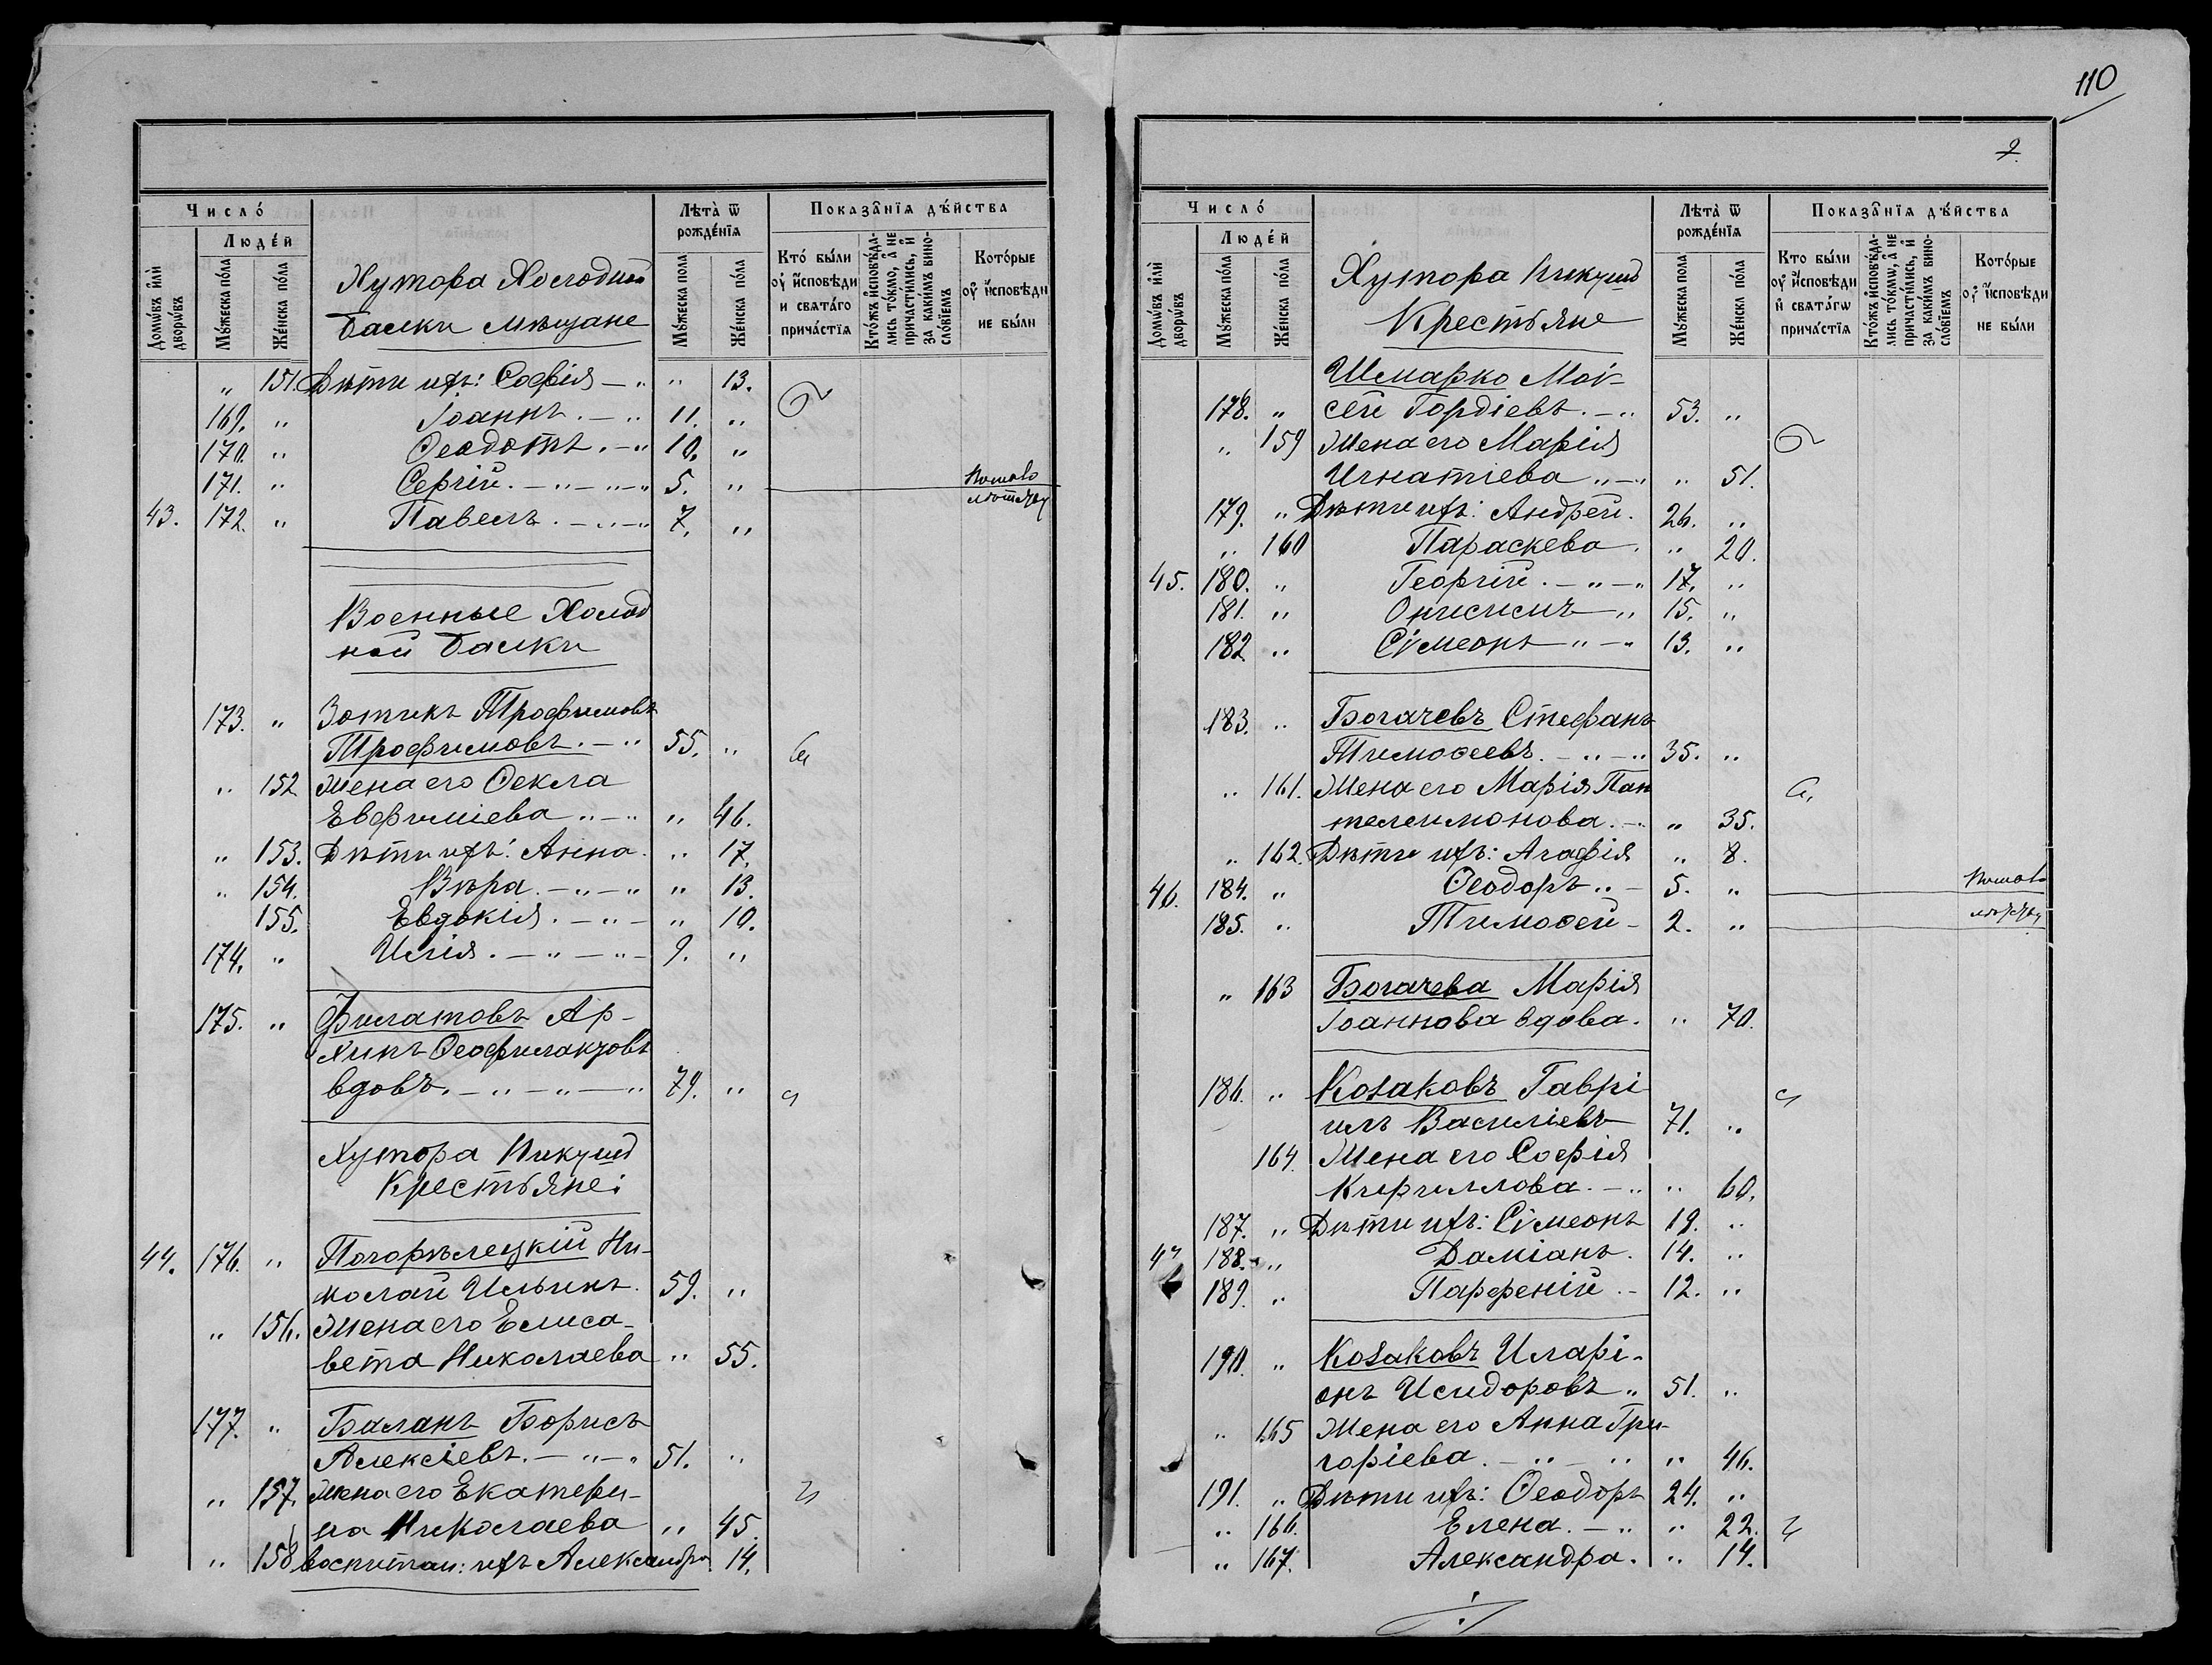 Число́
Люде́й
Домѡ́въ и҆лѝ дворѡ́въ
Мꙋ́жеска по́ла
Же́нска по́ла
Лѣта̀ ѿ рожде́нїѧ
Мꙋ́жеска пола
Же́нска по́ла
Показа̑нїѧ дѣ́йства
Кто́ бы́ли оу҆ и҆сповѣди и свѧта́го прича́стїѧ
Кто́жъ и҆сповѣ́дались то́кмо, а҆ не причасти́лись, и҆ за каки́мъ вино сло́вїемъ
Кото́рые оу҆ и҆сповѣди не бы́ли
Хутора Холодной
Балки мѣщане
„ 151. Дѣти ихъ: Софія — „ „ 13.
169. „ Іоаннъ. — „ 11. „
170. „ Ѳеодотъ. — „ 10. „
171. „ Сергій. — „ — „ — „ 5. „
43. 172. „ Павелъ. — „ — „ 7. „
Военные Холод
ной Балки
173. „ Зотикъ Трофимовъ
Трофимовъ. — „ 55. „
„ 152 Жена его Ѳекла
Евфиміева „ — „ „ 46.
„ 153. Дѣти ихъ: Анна. „ 17.
„ 154. Вѣра. — „ — „ „ 13.
155. Евдокія. — „ — „ 10.
174. „ Илія. — „ — „ — 9. „
175. „ Филатовъ Ар-
хипъ Ѳеофилактовъ
вдовъ. — „ — „ — „ 79. „
Хутора Кикушъ
Крестьяне:
44. 176. „ Погорѣлецкій Ни-
колай Ильинъ. 59. „
„ 156. Жена его Елиса-
вета Николаева „ 55.
177. „ Баланъ Борисъ
Алексіевъ. — „ — „ 51. „
„ 157. Жена его Екатери-
на Николаева „ 45.
„ 158 воспитан: ихъ Александра 14.
110
2
Число́
Люде́й
Домѡ́въ и҆лѝ дворѡ́въ
Мꙋ́жеска по́ла
Же́нска по́ла
Лѣта̀ ѿ рожде́нїѧ
Мꙋ́жеска пола
Же́нска по́ла
Показа̑нїѧ дѣ́йства
Кто бы́ли оу҆ и҆сповѣди и҆ свѧта́гѡ прича́стїѧ
Кто́жъ и҆сповѣ́дались то́кмѡ, а҆ не причасти́лись, и҆ за каки́мъ вино сло́вїемъ
Кото́рые оу҆ и҆сповѣди не бы́ли
Хутора Кикушъ
Крестьяне
Шмарко Мои-
178. „ сей Гордіевъ. — „ 53. „
„ 159 Жена его Марія
Игнатіева „ — „ „ 51.
179. „ Дѣти ихъ: Андрей. 26. „
„ 160 Параскева. „ 20.
45. 180. „ Георгій. — „ — „ 17. „
181. „ Онисимъ — „ 15. „
182 „ Сѵмеонъ „ — „ 13. „
183. „ Богачевъ Стефанъ
Тимоѳеевъ. — „ — „ 35. „
„ 161. Жена его Марія Пан
телеимонова. — „ „ 35.
„ 162. Дѣти ихъ: Агафія „ 8.
46. 184. „ Ѳеодоръ „ — 5. „
185. „ Тимоѳей — 2. „
„ 163 Богачева Марія
Іоаннова вдова. „ 70.
186. „ Козаковъ Гаврі
илъ Василіевъ 71. „
164. Жена его Софія
Кириллова. — „ „ 60.
187. „ Дѣти ихъ: Сѵмеонъ 19. „
47 188. „ Даміанъ. 14. „
189. „ Парфеній. — 12. „
190. „ Козаковъ Иларі-
онъ Исидоровъ „ 51. „
„ 165 Жена его Анна Гри-
горіева. — „ — „ „ 46.
191. „ Дѣти ихъ: Ѳеодоръ 24. „
„ 166. Елена. — „ „ 22.
„ 167. Александра. „ 14.